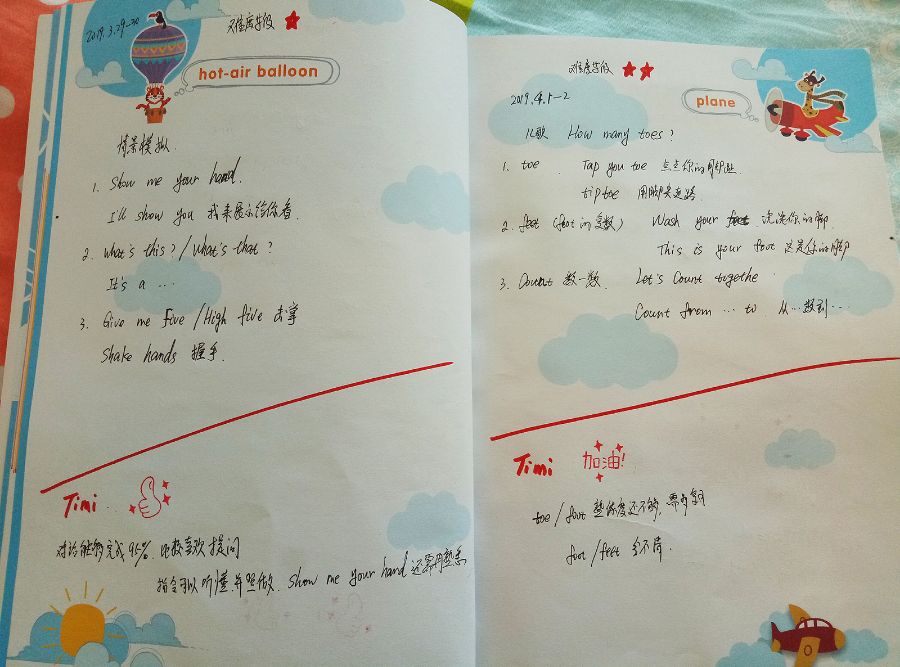 2019.3.29-30
难度等级
hot-air balloon
情景模拟
1. Show me your hand.
I'll show you 我来展示给你看.
2. what's this? / What's that?
It's a ...
3. Give me Five / High five 击掌
Shake hands 握手.
Timi
对话能够完成95% 比较喜欢提问
指令可以听懂并照做. Show me your hand 还需要再熟悉
难度等级
plane
2019.4.1-2
儿歌 How many toes?
1. toe Tap you toe 点点你的脚趾
tip toe 用脚尖走路
2. feet (foot的复数) Wash your feet 洗洗你的脚
This is your foot 这是你的脚
3. Count 数一数. Let's Count togethe
Count from ... to 从...数到...
Timi 加油!
toe / foot 熟练度还不够,
foot / feet 分不清.